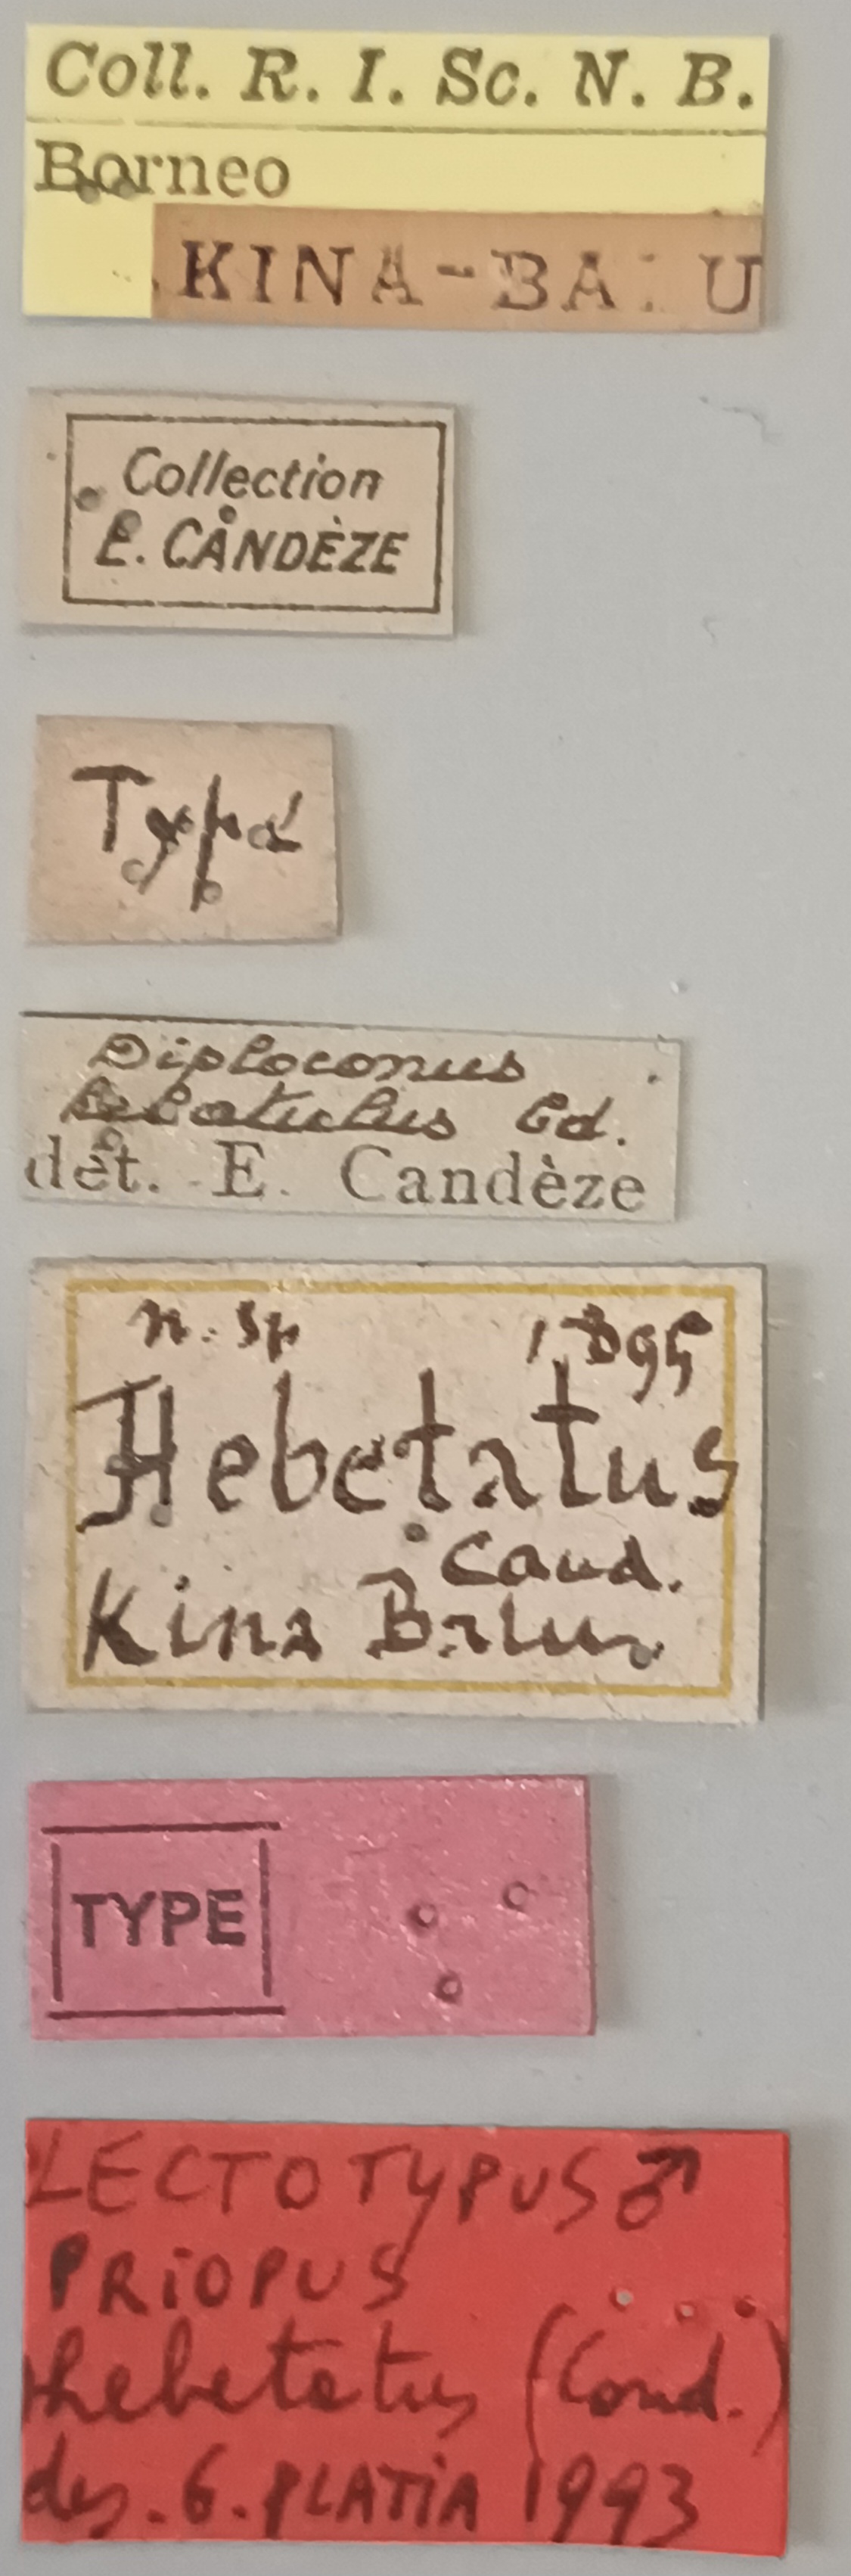 Coll. R. I. Sc. N. B.
Borneo
KINA-BALU
Collection
E. CANDÈZE
Type
Diploconus
hebatutus Cd.
dét. E. Candèze
n. sp 1895
Hebetatus
Cand.
Kina Balu
TYPE
LECTOTYPUS ♂
PRIOPUS
hebetatus (Cand.)
des. G. PLATIA 1993